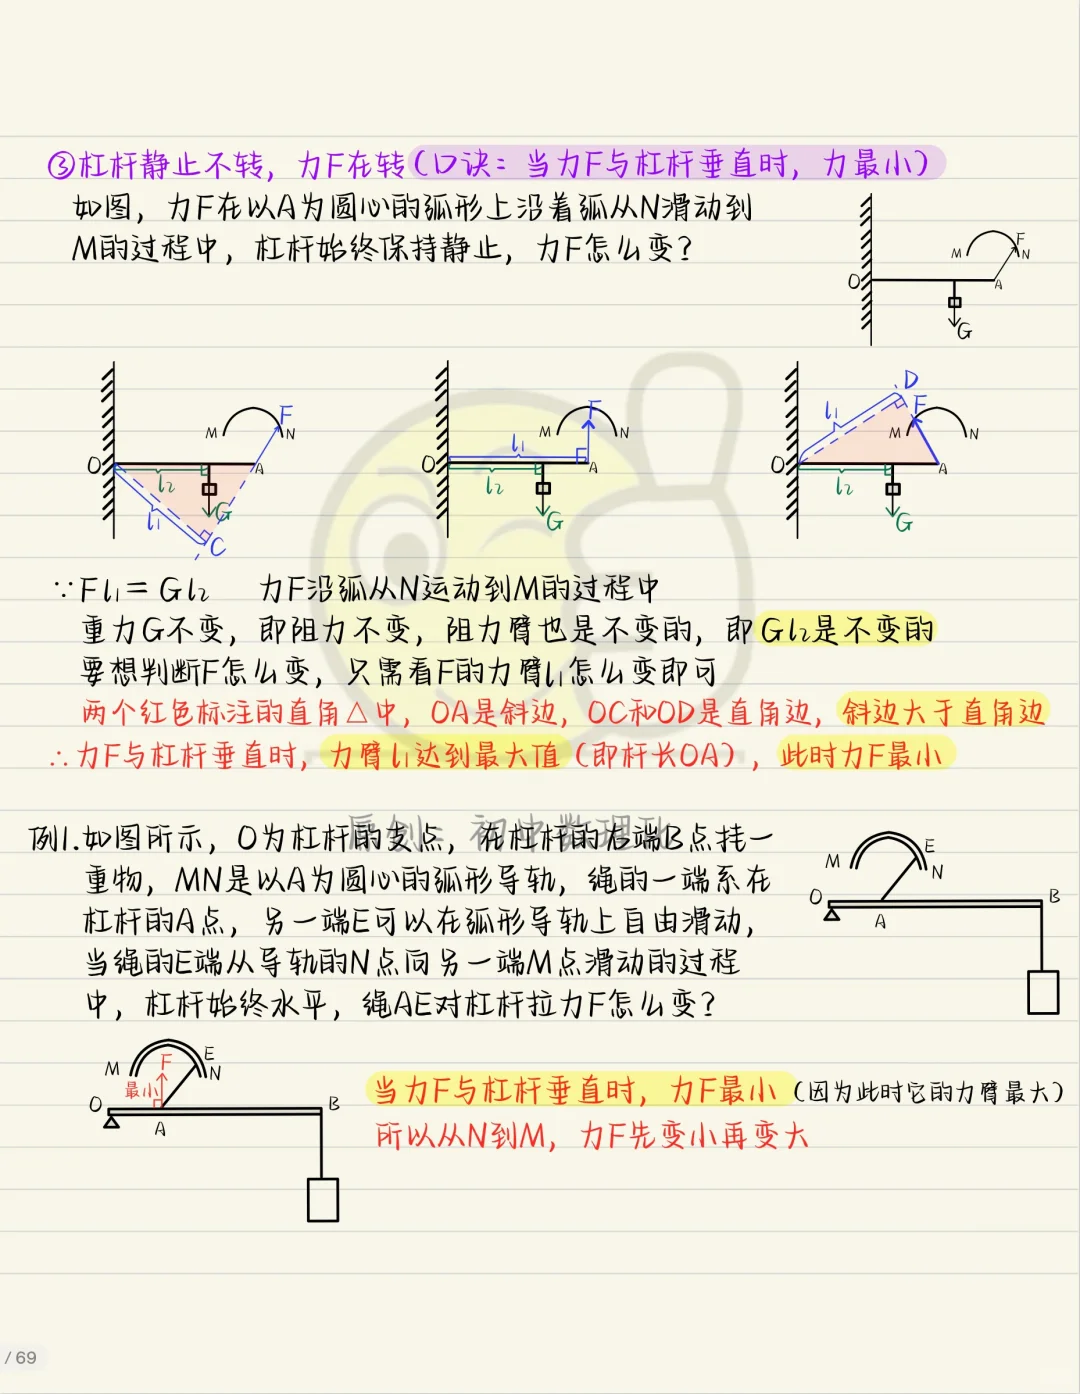 ③杠杆静止不转，力F在转(口诀：当力F与杠杆垂直时，力最小)
如图，力F在以A为圆心的弧形上沿着弧从N滑动到
M的过程中，杠杆始终保持静止，力F怎么变？
M F N
O A
G
O M N F A
l₂ l₁ G C
O M N F A
l₁ l₂ G
O M N F A D
l₁ l₂ G
∵Fl₁=Gl₂ 力F沿弧从N运动到M的过程中
重力G不变，即阻力不变，阻力臂也是不变的，即Gl₂是不变的
要想判断F怎么变，只需看F的力臂l₁怎么变即可
两个红色标注的直角△中，OA是斜边，OC和OD是直角边，斜边大于直角边
∴力F与杠杆垂直时，力臂l₁达到最大值(即杆长OA)，此时力F最小
原创：初中数理化
例1.如图所示，O为杠杆的支点，在杠杆的右端B点挂一
重物，MN是以A为圆心的弧形导轨，绳的一端系在
杠杆的A点，另一端E可以在弧形导轨上自由滑动，
当绳的E端从导轨的N点向另一端M点滑动的过程
中，杠杆始终水平，绳AE对杠杆拉力F怎么变？
M E N
O A B
M F E N
最小
O A B
当力F与杠杆垂直时，力F最小(因为此时它的力臂最大)
所以从N到M，力F先变小再变大
/ 69